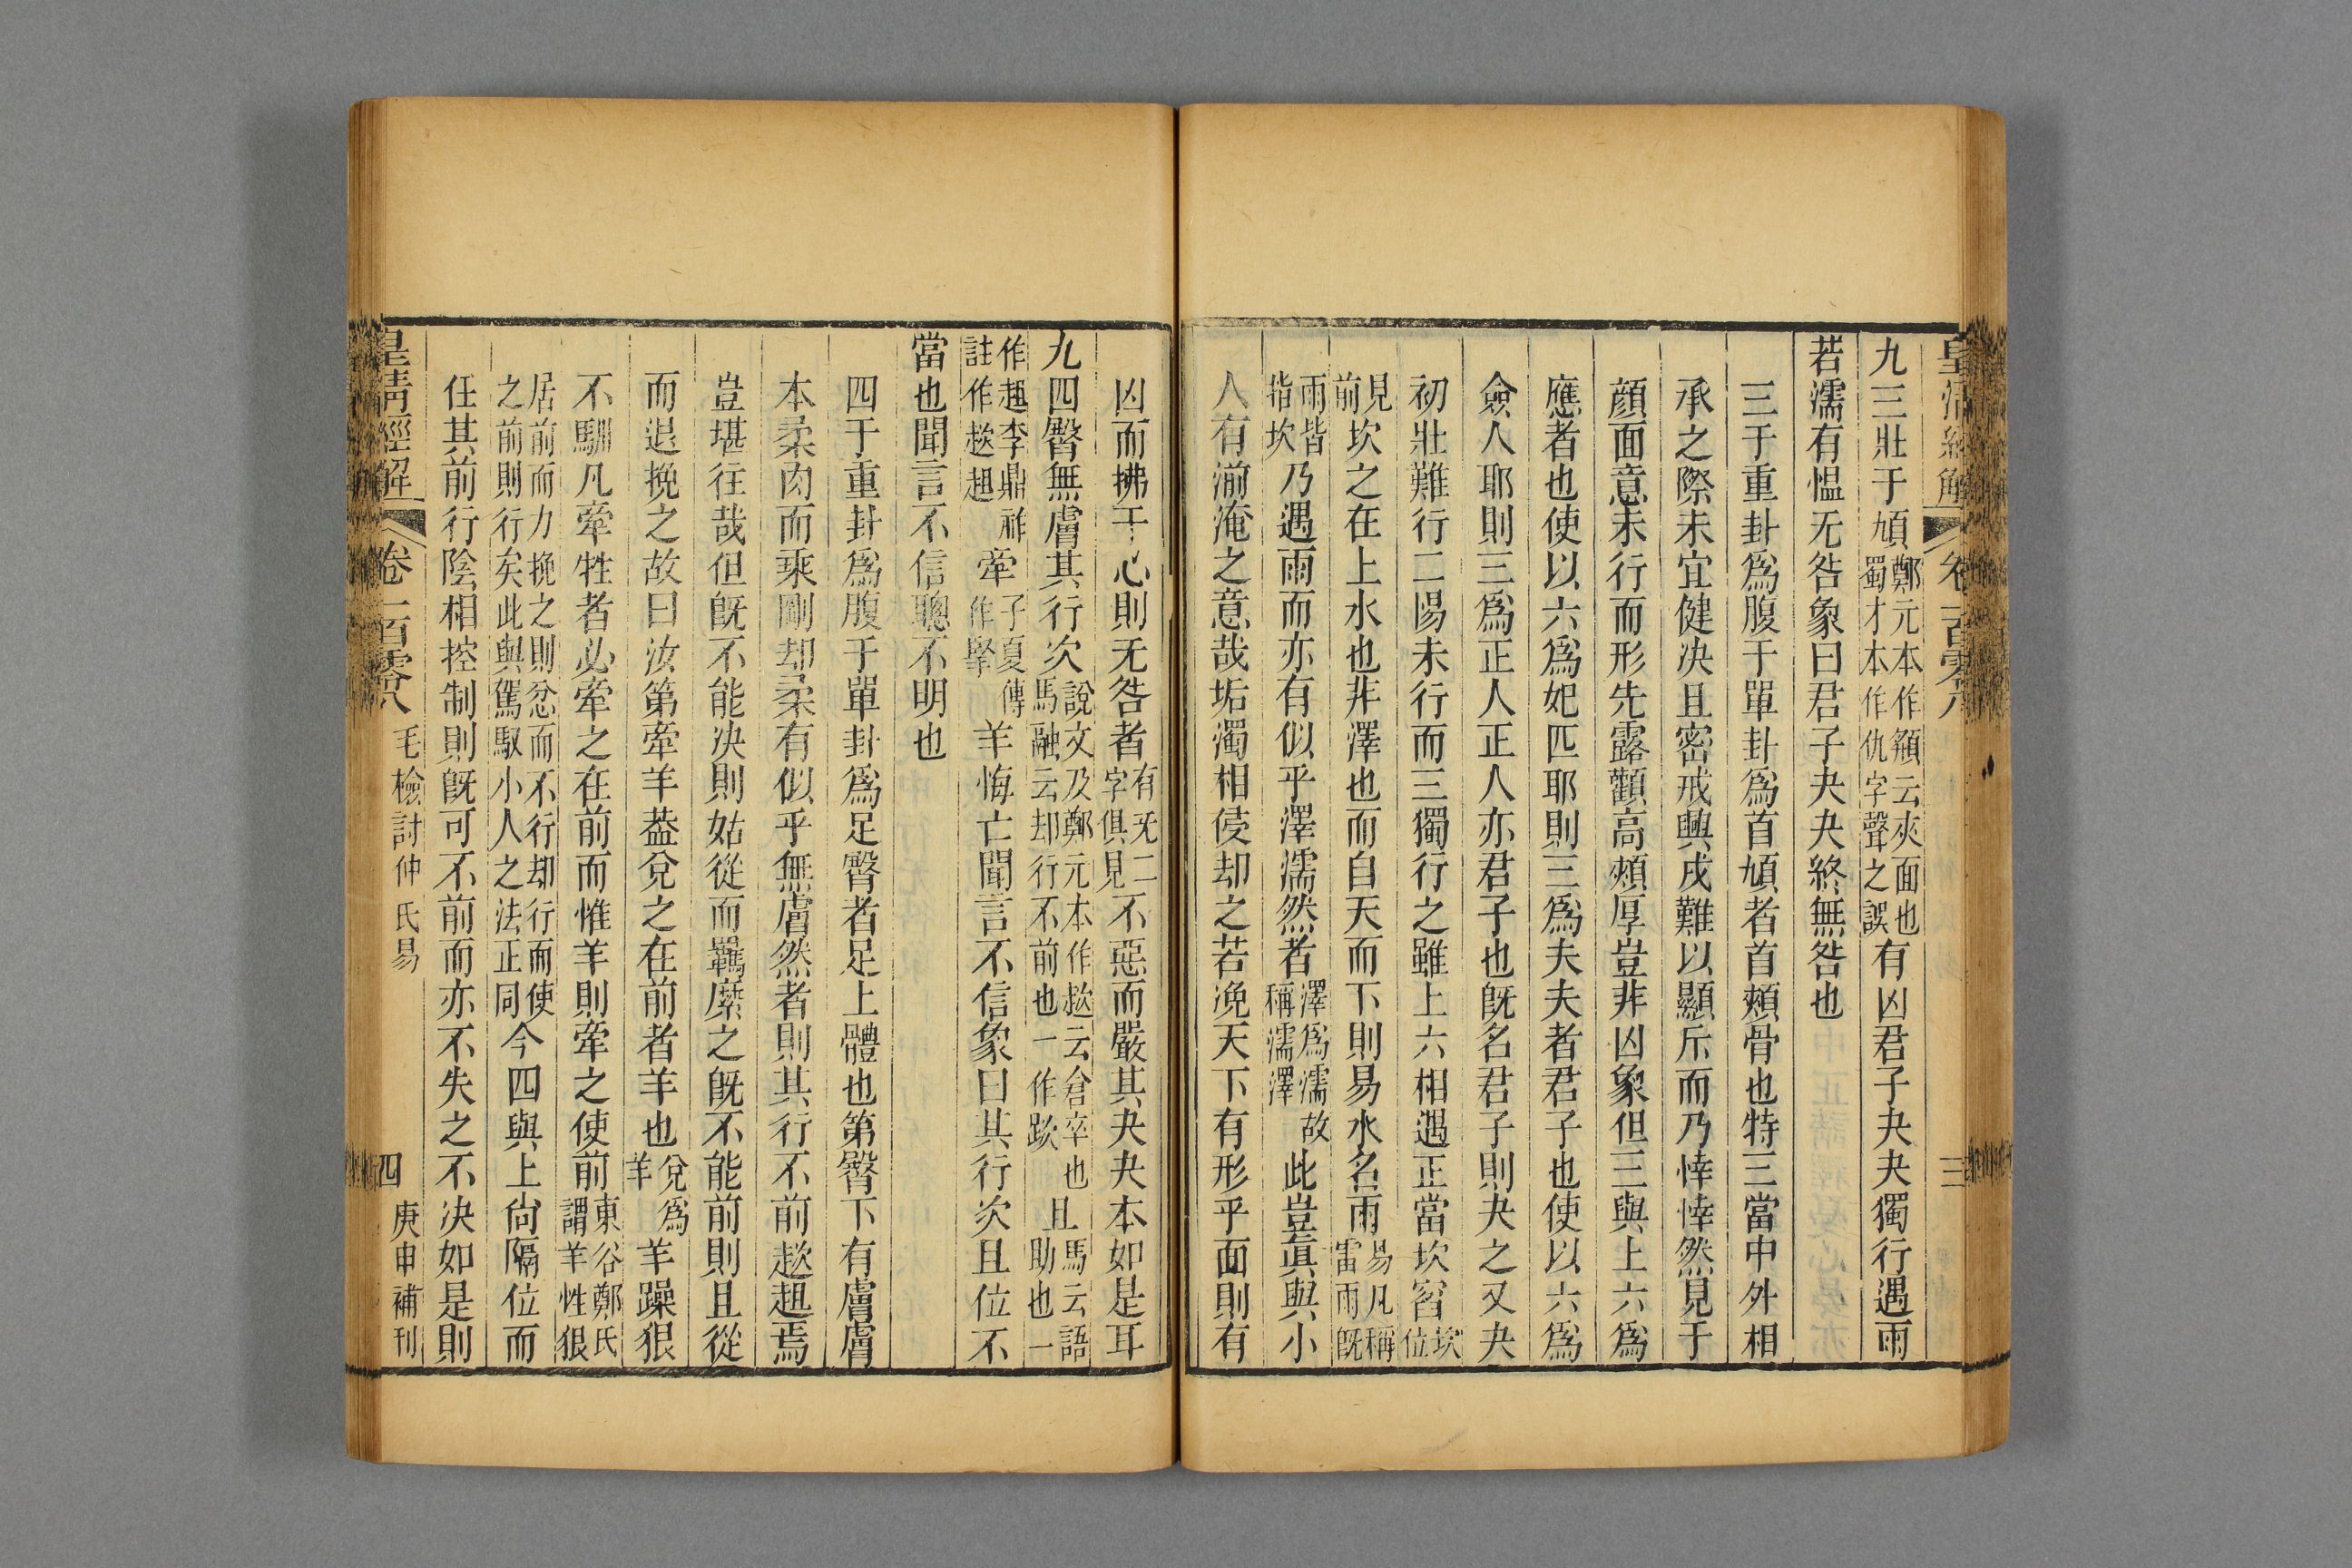 皇清經解 卷一百零八 三
九三壯于頄鄭元本作頯云夾面也蜀才本作仇字聲之誤有凶君子夬夬獨行遇雨
若濡有慍无咎象曰君子夬夬終無咎也
三于重卦爲腹于單卦爲首頄者首頰骨也特三當中外相
承之際未宜健决且密戒興戌難以顯斥而乃悻悻然見于
顔面意未行而形先露顴高頰厚豈非凶象但三與上六爲
應者也使以六爲妃匹耶則三爲夫夫者君子也使以六爲
僉人耶則三爲正人正人亦君子也旣名君子則夬之又夬
初壯難行二惕未行而三獨行之雖上六相遇正當坎窞坎位
見前坎之在上水也非澤也而自天而下則易水名雨易凡稱雷雨旣
雨皆指坎乃遇雨而亦有似乎澤濡然者澤爲濡故稱濡澤此豈眞與小
人有湔淹之意哉垢濁相侵却之若浼天下有形乎面則有
凶而拂于心則无咎者有旡二字俱見不惡而嚴其夬夬本如是耳
九四臀無膚其行次說文及鄭元本作趑云倉卒也馬融云却行不前也一作趑且馬云語助也一
作趄李鼎祚註作趑趄牽子夏傳作掔羊悔亡聞言不信象曰其行次且位不
當也聞言不信聰不明也
四于重卦爲腹于單卦爲足臀者足上體也第臀下有膚膚
本柔肉而乘剛却柔有似乎無膚然者則其行不前趑趄焉
豈堪往哉但旣不能决則姑從而羈縻之旣不能前則且從
而退挽之故曰汝第牽羊葢兌之在前者羊也兌爲羊羊躁狠
不馴凡牽牲者必牽之在前而惟羊則牽之使前東谷鄭氏謂羊性狠
居前而力挽之則忿而不行却行而使之前則行矣此與駕馭小人之法正同今四與上尙隔位而
任其前行陰相控制則旣可不前而亦不失之不决如是則
皇清經解 卷一百零八 毛檢討仲氏易 四 庚申補刊